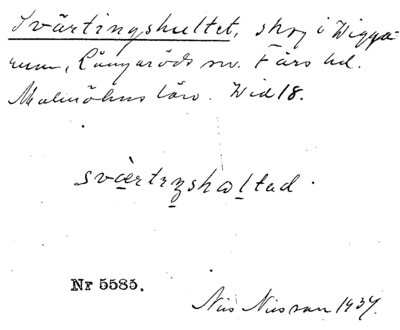 Svärtingshultet, skog i Wigga-
rum, Långaröds sn. Färs hd.
Malmöhus län. Wid 18.
svärtɪŋshɷltad.
Nr 5585.
Nils Nilsson 1934.